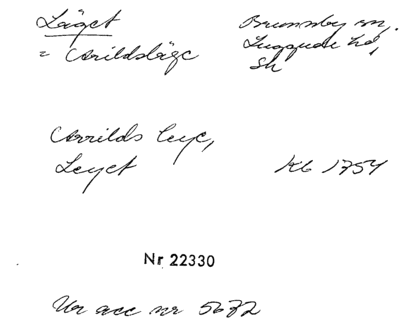 Läget
= Arildsläge
Brunnby sn,
Luggude hd,
Sk
Arrilds leye,
Leyet
Kb 1754
Nr 22330
Ur acc nr 5672